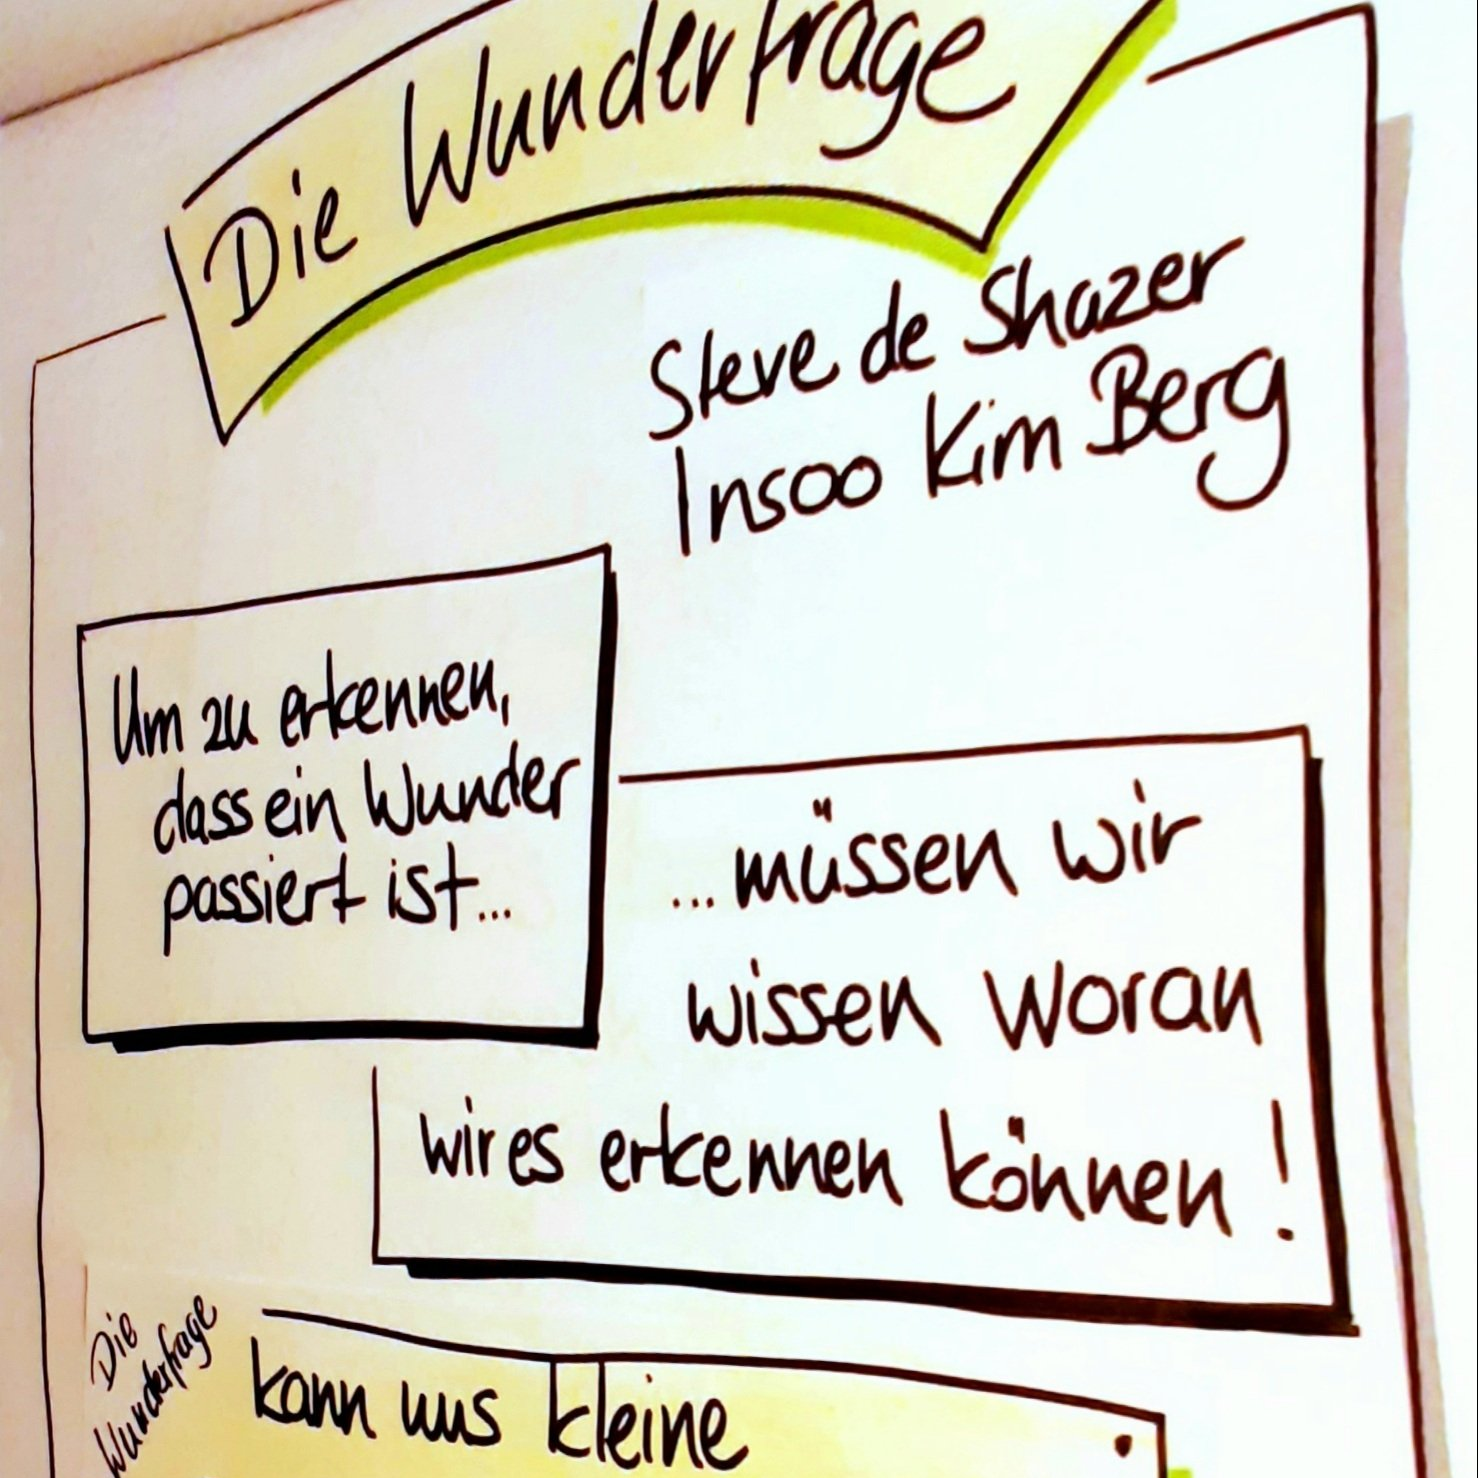 Die Wunderfrage
Steve de Shazer
Insoo Kim Berg
Um zu erkennen,
dass ein Wunder
passiert ist...
...müssen wir
wissen woran
wir es erkennen können!
Die
Wunderfrage
kann uns kleine